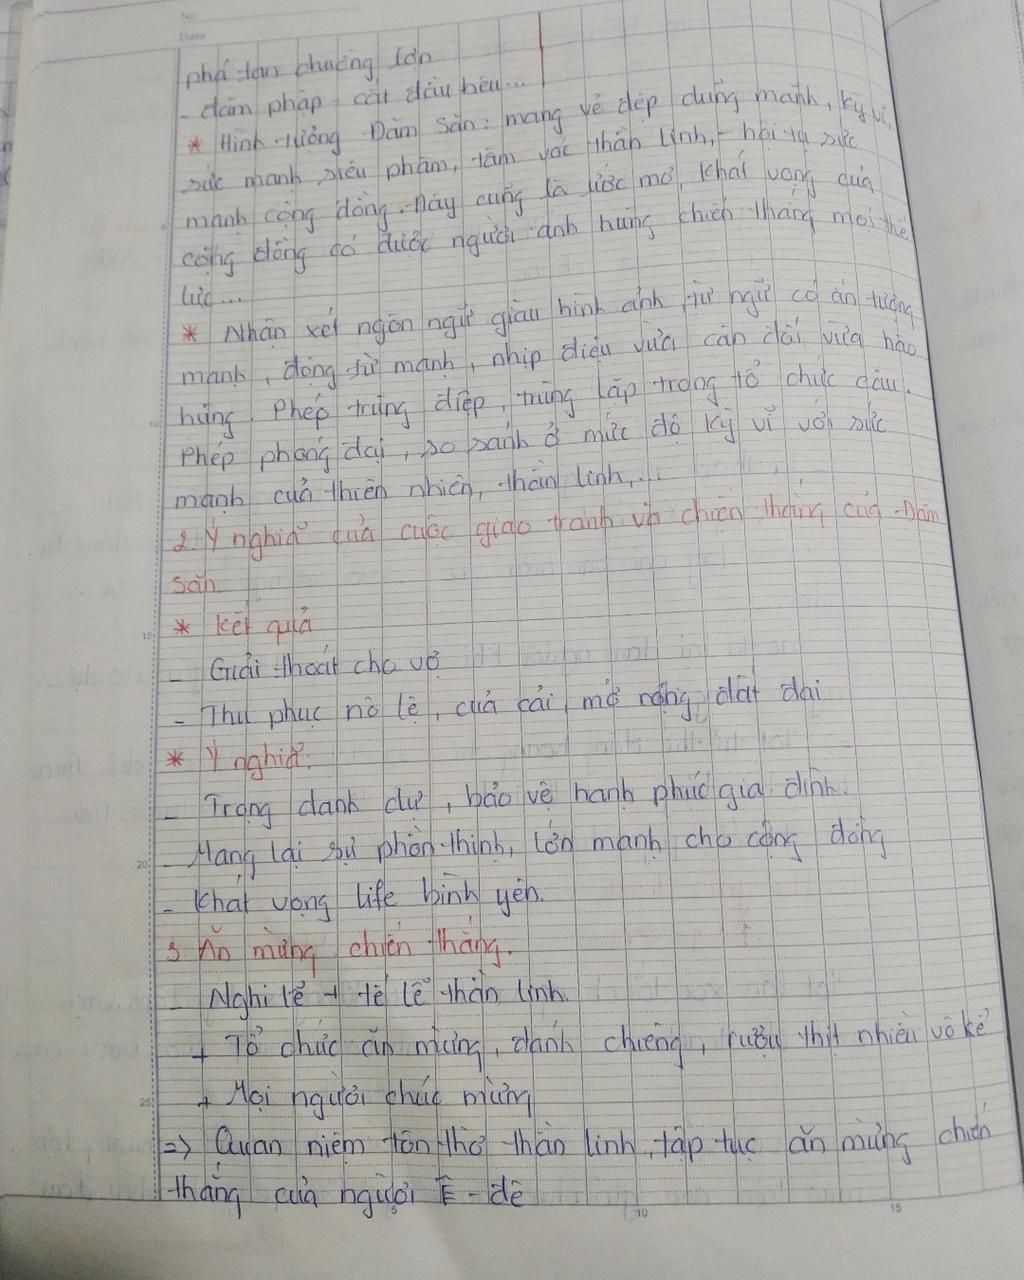 No
Date
phá tan chuồng lợn
- đâm phập cắt đầu bêu...
* Hình tượng Đăm Săn: mang vẻ đẹp dũng mãnh, kỳ vĩ,
sức mạnh siêu phàm, tầm vóc thần linh, hội tụ sức
mạnh cộng đồng. Đây cũng là ước mơ, khát vọng của
cộng đồng có được người anh hùng chiến thắng mọi thế
lực...
* Nhận xét ngôn ngữ giàu hình ảnh, từ ngữ có ấn tượng
mạnh, động từ mạnh, nhịp điệu vừa cân đối vừa hào
hùng. Phép trùng điệp, trùng lặp trong tổ chức câu.
Phép phóng đại, so sánh ở mức độ kỳ vĩ với sức
mạnh của thiên nhiên, thần linh,...
2. Ý nghĩa của cuộc giao tranh và chiến thắng của Đăm
Săn.
* Kết quả
- Giải thoát cho vợ
- Thu phục nô lệ, của cải, mở rộng đất đai
* Ý nghĩa:
- Trọng danh dự, bảo vệ hạnh phúc gia đình.
- Mang lại sự phồn thịnh, lớn mạnh cho cộng đồng
- Khát vọng life bình yên.
3 Ăn mừng chiến thắng.
- Nghi lễ + tế lễ thần linh.
+ Tổ chức ăn mừng, đánh chiêng, rượu thịt nhiều vô kể
+ Mọi người chúc mừng
=> Quan niệm tôn thờ thần linh, tập tục ăn mừng chiến
thắng của người Ê-đê
10
15
20
25
5 10 15